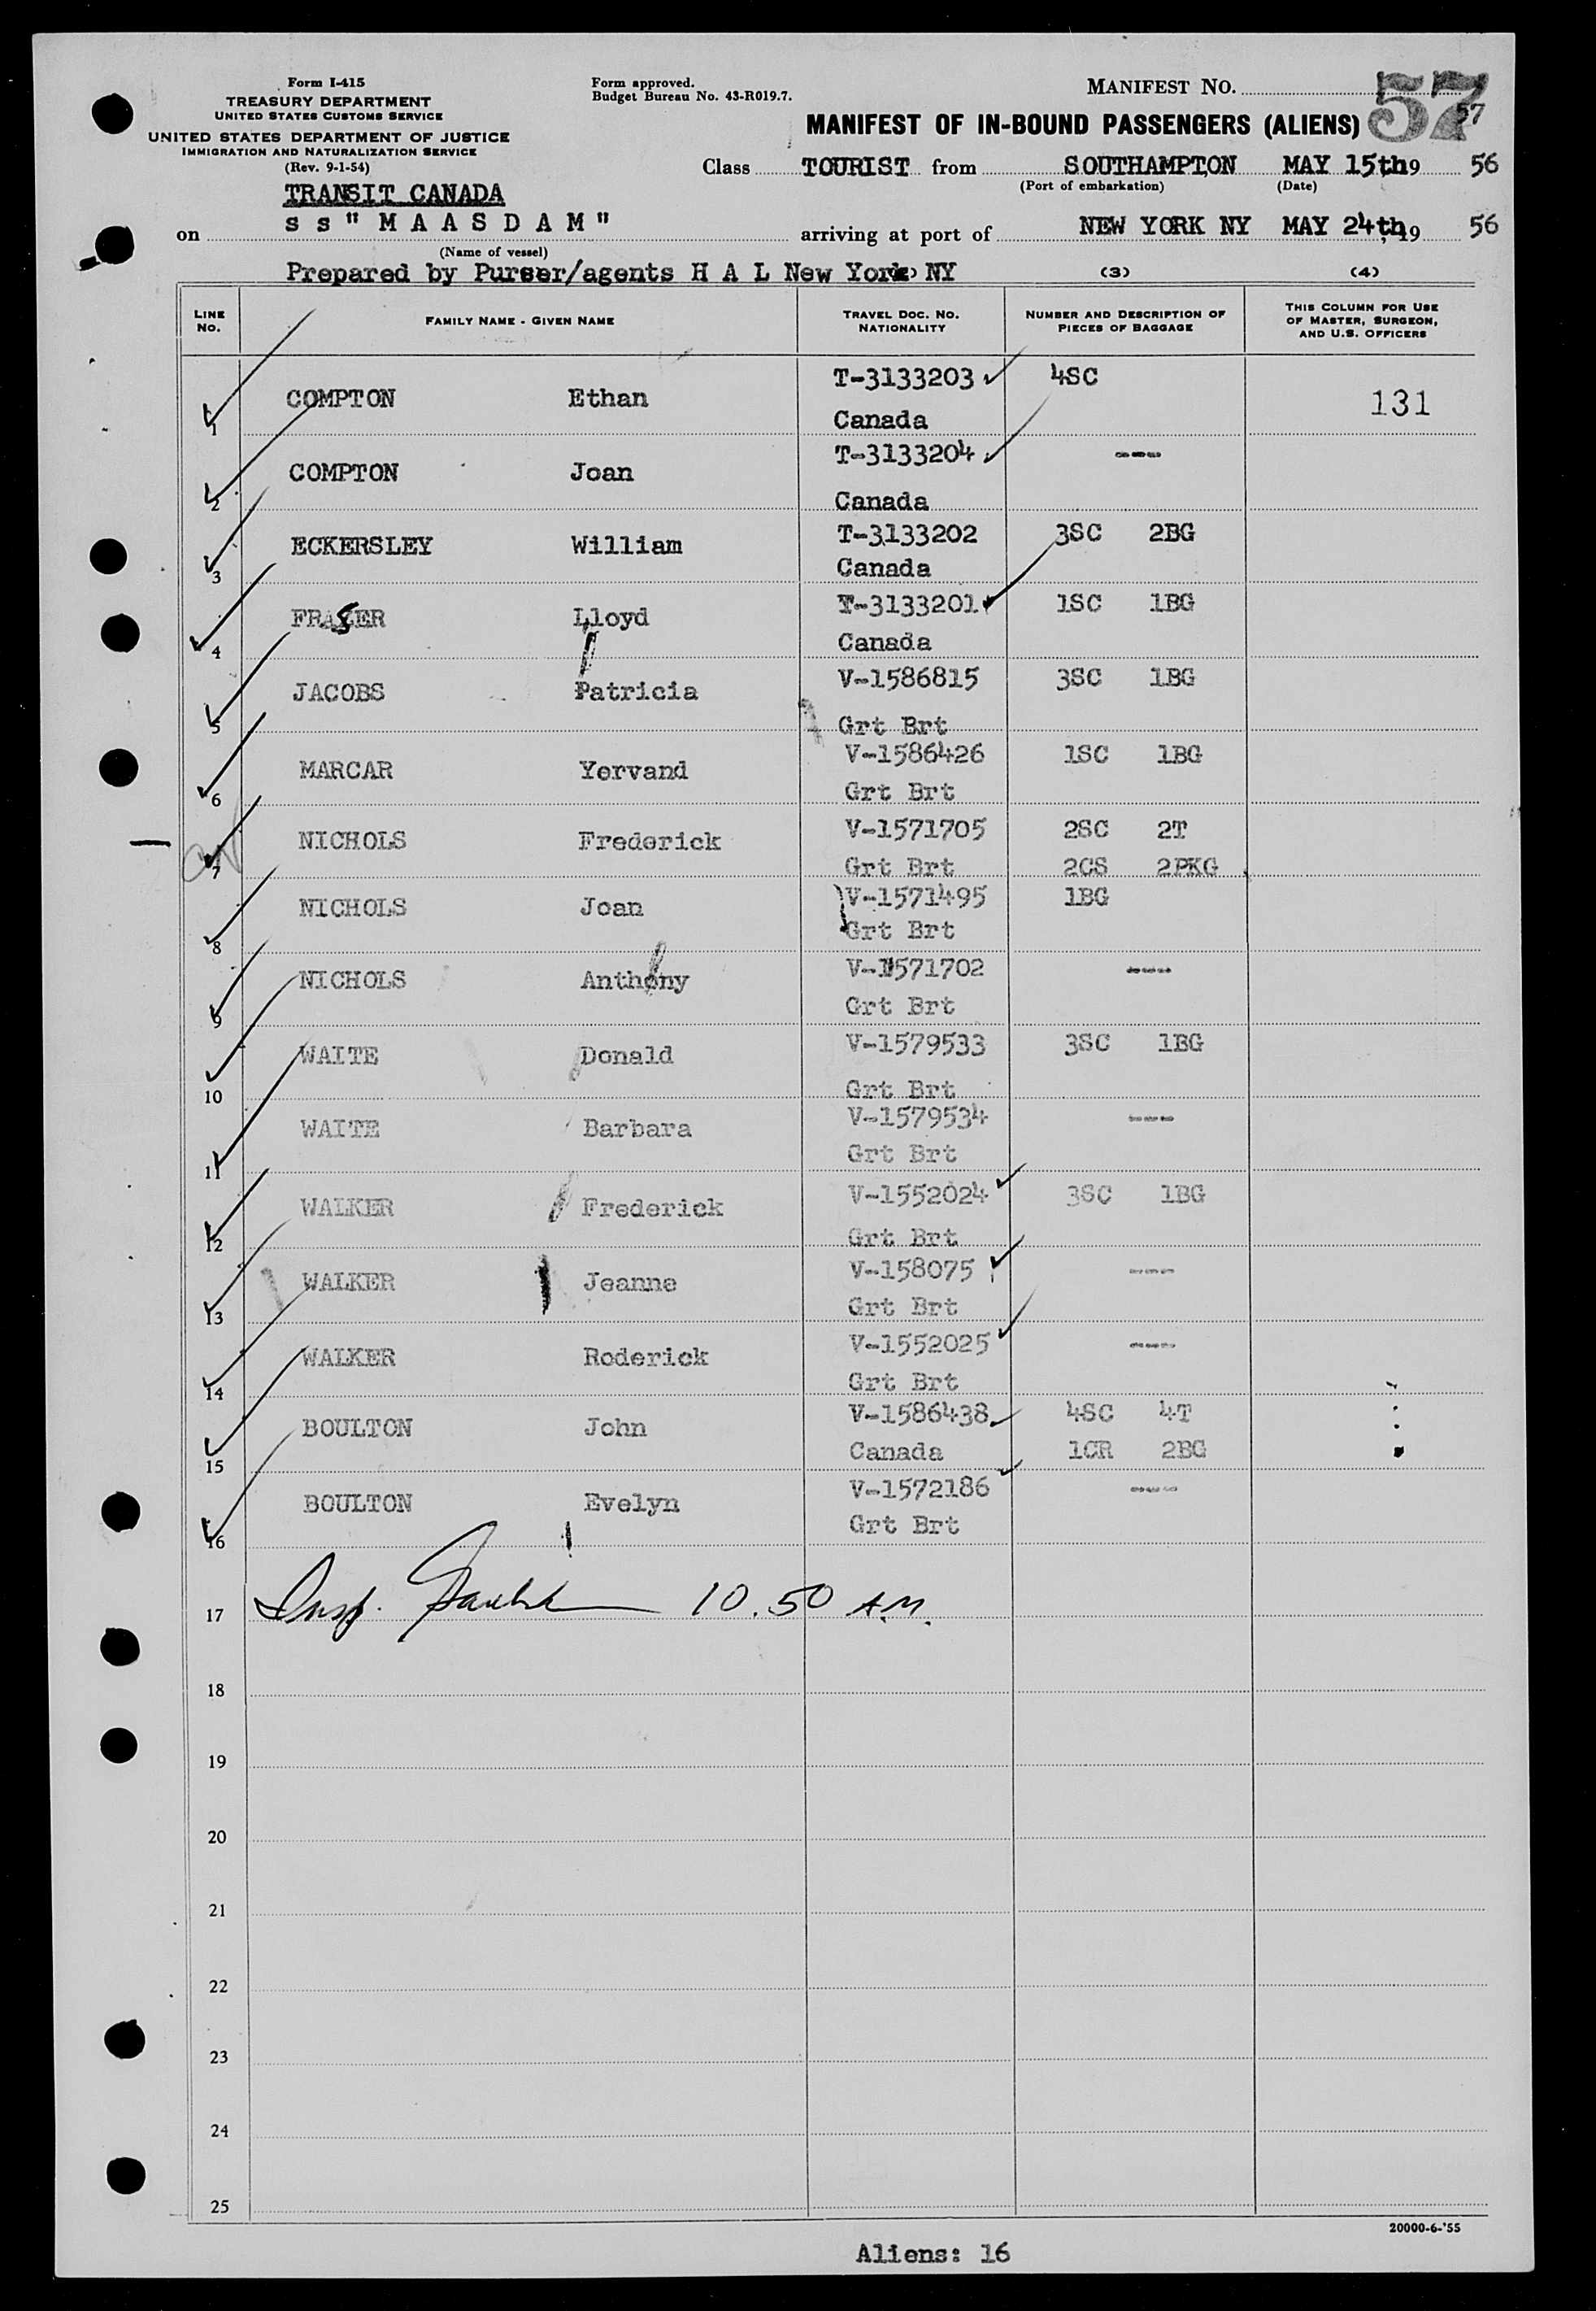 Form I-415
TREASURY DEPARTMENT
UNITED STATES CUSTOMS SERVICE
UNITED STATES DEPARTMENT OF JUSTICE
IMMIGRATION AND NATURALIZATION SERVICE
(Rev. 9-1-54)
Form approved.
Budget Bureau No. 43-R019.7.
MANIFEST NO. 57
57
MANIFEST OF IN-BOUND PASSENGERS (ALIENS)
Class TOURIST from SOUTHAMPTON MAY 15th 19 56
(Port of embarkation) (Date)
TRANSIT CANADA
on s s " M A A S D A M " arriving at port of NEW YORK NY MAY 24th, 19 56
(Name of vessel)
Prepared by Purser/agents H A L New York NY (3) (4)
LINE NO. FAMILY NAME - GIVEN NAME TRAVEL DOC. NO. NATIONALITY NUMBER AND DESCRIPTION OF PIECES OF BAGGAGE THIS COLUMN FOR USE OF MASTER, SURGEON, AND U.S. OFFICERS
1 COMPTON Ethan T-3133203 4SC 131
Canada
2 COMPTON Joan T-3133204 ---
Canada
3 ECKERSLEY William T-3133202 3SC 2BG
Canada
4 FRASER Lloyd T-3133201 1SC 1BG
Canada
5 JACOBS Patricia V-1586815 3SC 1BG
Grt Brt
6 MARCAR Yervand V-1586426 1SC 1BG
Grt Brt
7 NICHOLS Frederick V-1571705 2SC 2T
Grt Brt 2CS 2PKG
8 NICHOLS Joan V-1571495 1BG
Grt Brt
9 NICHOLS Anthony V-1571702 ----
Grt Brt
10 WAITE Donald V-1579533 3SC 1BG
Grt Brt
11 WAITE Barbara V-1579534 ---
Grt Brt
12 WALKER Frederick V-1552024 3SC 1BG
Grt Brt
13 WALKER Jeanne V-158075 ---
Grt Brt
14 WALKER Roderick V-1552025 ---
Grt Brt
15 BOULTON John V-1586438 4SC 4T
Canada 1CR 2BG
16 BOULTON Evelyn V-1572186 ----
Grt Brt
17 Insp. 10.50 A.M.
18
19
20
21
22
23
24
25
20000-6-'55
Aliens: 16